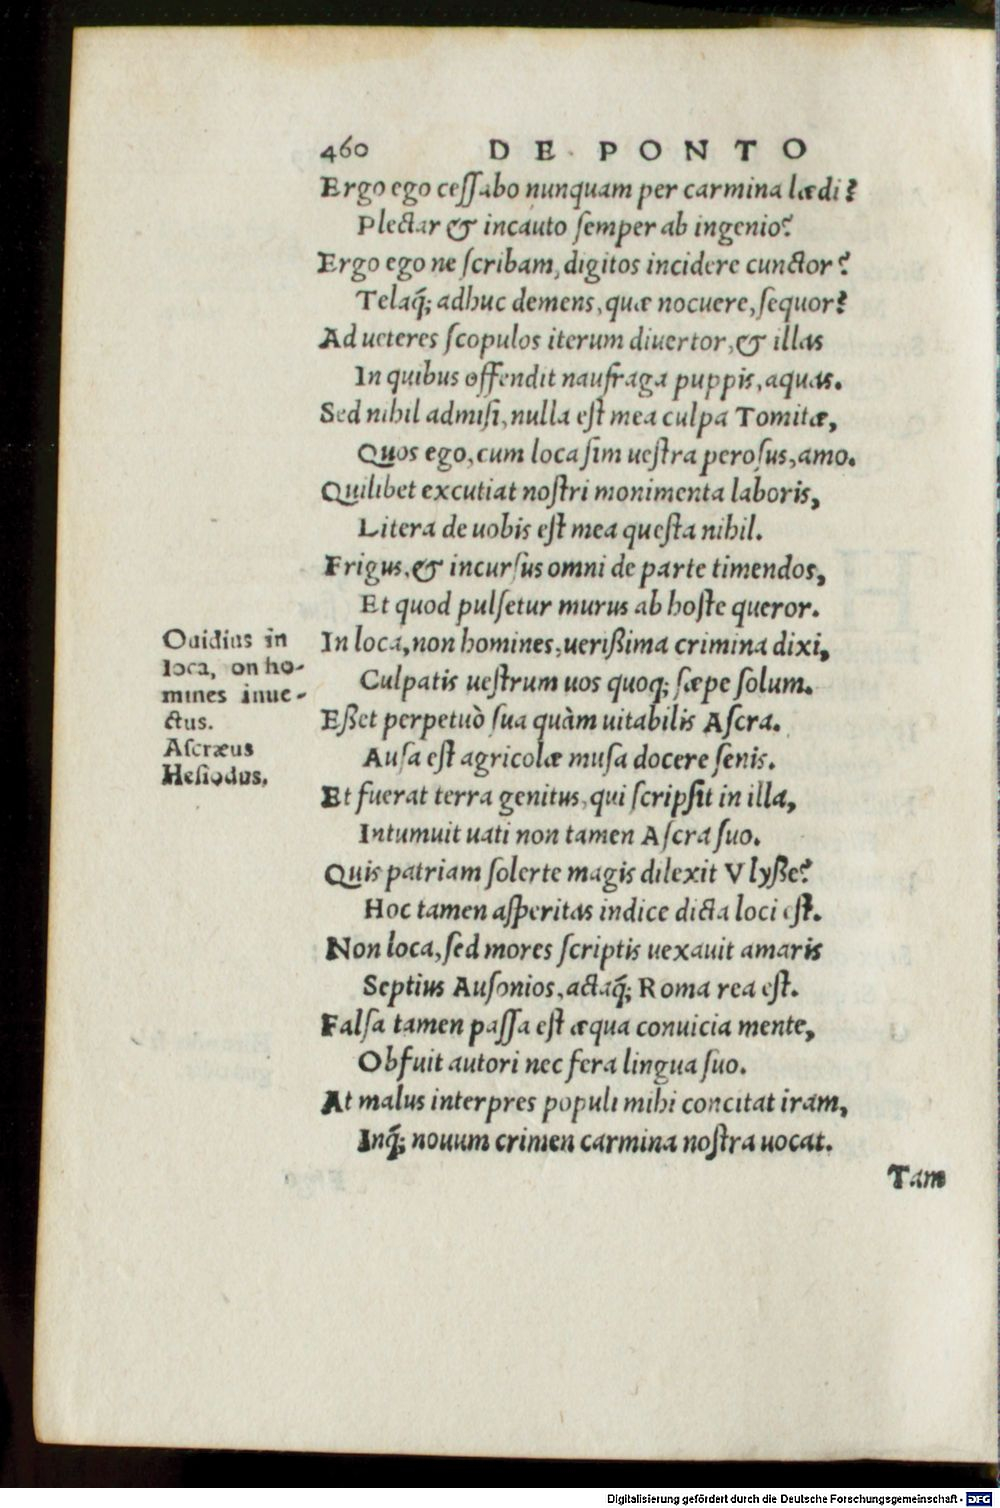 460 DE PONTO
Ergo ego ceſſabo nunquam per carmina lædi?
Plectar & incauto ſemper ab ingenio?
Ergo ego ne ſcribam, digitos incidere cunctor?
Telaq́; adhuc demens, quæ nocuere, ſequor?
Ad ueteres ſcopulos iterum diuertor, & illas
In quibus offendit naufraga puppis, aquas.
Sed nihil admiſi, nulla eſt mea culpa Tomitæ,
Quos ego, cum loca ſim ueſtra peroſus, amo.
Quilibet excutiat noſtri monimenta laboris,
Litera de uobis eſt mea queſta nihil.
Frigus, & incurſus omni de parte timendos,
Et quod pulſetur murus ab hoſte queror.
In loca, non homines, uerißima crimina dixi,
Culpatis ueſtrum uos quoq; ſæpe ſolum.
Eßet perpetuò ſua quàm uitabilis Aſcra.
Auſa eſt agricolæ muſa docere ſenis.
Et fuerat terra genitus, qui ſcripſit in illa,
Intumuit uati non tamen Aſcra ſuo.
Quis patriam ſolerte magis dilexit Vlyße?
Hoc tamen aſperitas indice dicta loci eſt.
Non loca, ſed mores ſcriptis uexauit amaris
Septius Auſonios, actaq́; Roma rea eſt.
Falſa tamen paſſa eſt æqua conuicia mente,
Obfuit autori nec fera lingua ſuo.
At malus interpres populi mihi concitat iram,
Inq́; nouum crimen carmina noſtra uocat.
Tam
Ouidius in
loca, on ho-
mines inue-
ctus.
Aſcræus
Heſiodus.
Digitalisierung gefördert durch die Deutsche Forschungsgemeinschaft - DFG